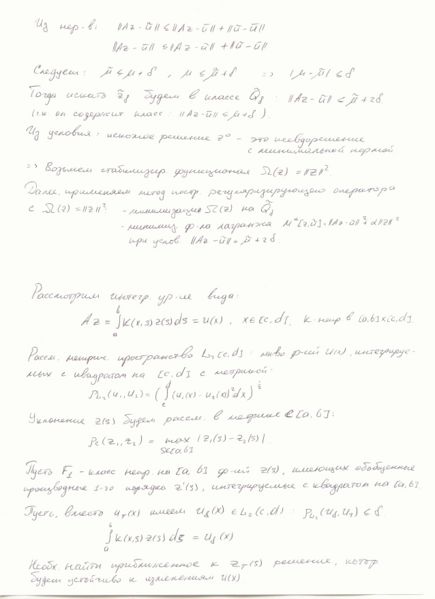 Из нер-в: ||Az-ũ|| ≤ ||Az-u|| + ||u-ũ||
||Az-u|| ≤ ||Az-ũ|| + ||ũ-u||
Следует: μ̃ ≤ μ+δ, μ ≤ μ̃+δ => |μ-μ̃| ≤ δ
Тогда искать z̃δ будем в классе Q̃δ: ||Az-ũ|| ≤ μ̃+2δ
(т.к он содержит класс: ||Az-ũ|| ≤ μ+δ).
Из условия: искомое решение z° - это псевдорешение
с минимальной нормой
=> Возьмем стабилизир. функционал Ω(z) = ||z||²
Далее, применяем метод постр. регуляризирующего оператора
с Ω(z) = ||z||²: - минимизация Ω(z) на Q̃δ
- миним. ф-ла лагранжа Mᵅ[z,ũ] = ||Az-ũ||² + α||z||²
при услов ||Az-ũ|| = μ̃ + 2δ
Рассмотрим интегр. ур-ие вида:
Az = ∫ₐᵇ K(x,s) z(s) ds = u(x), x∈[c,d], K-непр в [a,b]x[c,d]
Рассм. метрич. пространство L₂[c,d]: мн-во ф-ий u(x), интегрируе-
мых с квадратом на [c,d] с метрикой:
ρL₂(u₁,u₂) = (∫ (u₁(x) - u₂(x))² dx)^½
Уклонение z(s) будем рассм. в метрике C[a,b]:
ρc(z₁,z₂) = max |z₁(s) - z₂(s)|
s∈[a,b]
Пусть F₁ - класс непр на [a,b] ф-ий z(s), имеющих обобщенные
производные 1-го порядка z'(s), интегрируемые с квадратом на [a,b]
Пусть, вместо uт(x) имеем uδ(x) ∈ L₂[c,d]: ρL₂(uδ,uт) ≤ δ
∫ₐᵇ K(x,s) z(s) ds = uδ(x)
Необх. найти приближенное к zт(s) решение, котор
будет устойчиво к изменениям u(x)